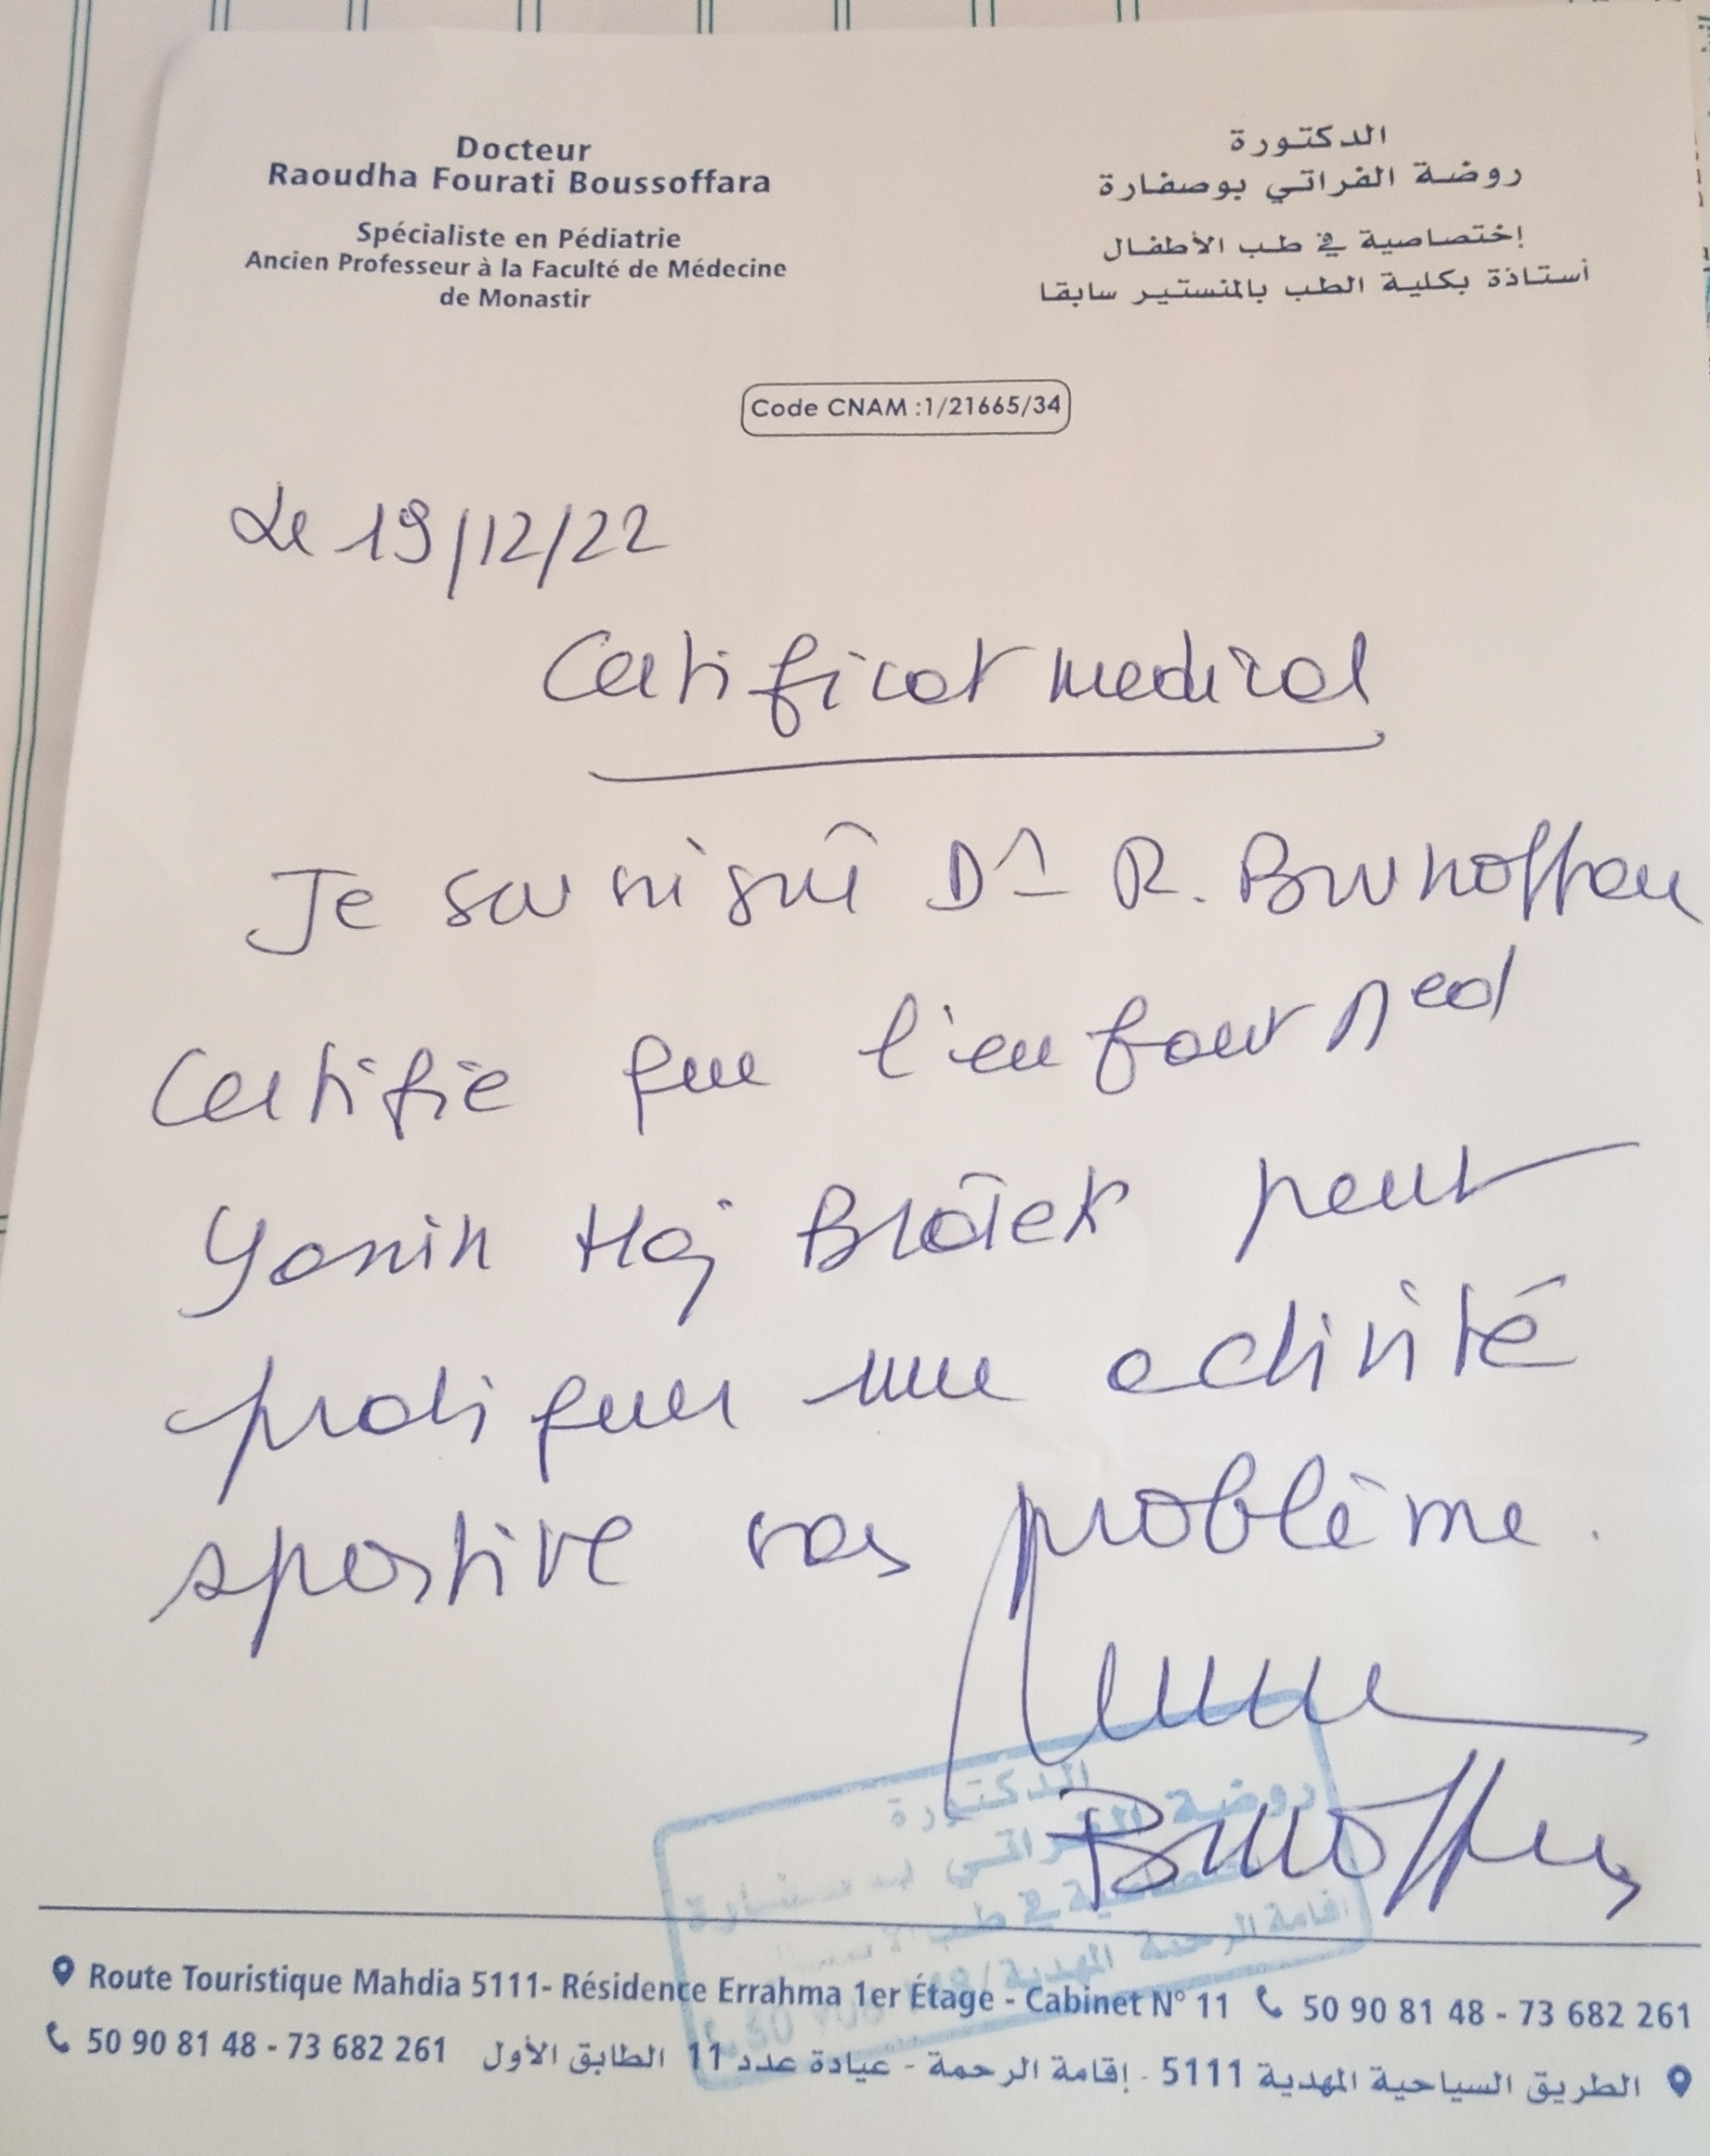 Docteur
Raoudha Fourati Boussoffara
Spécialiste en Pédiatrie
Ancien Professeur à la Faculté de Médecine
de Monastir
الدكتورة
روضة الفراتي بوصفارة
إختصاصية في طب الأطفال
أستاذة بكلية الطب بالمنستير سابقا
Code CNAM :1/21665/34
Le 19/12/22
Certificat medical
Je soussigné Dr R. Boussoffara
Certifie que l'enfant Med
Yassin Haj Brâiek peut
pratiquer une activité
sportive sas problème.
الدكتورة
روضة الفراتي بوصفارة
إختصاصية في طب
إقامة الرحمة المهدية
Route Touristique Mahdia 5111- Résidence Errahma 1er Étage - Cabinet N° 11 50 90 81 48 - 73 682 261
الطريق السياحية المهدية 5111 - إقامة الرحمة - عيادة عدد 11 الطابق الأول 50 90 81 48 - 73 682 261